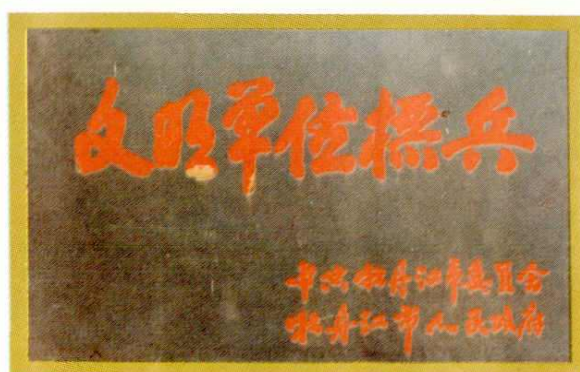 文明单位标兵
中共牡丹江市委员会
牡丹江市人民政府